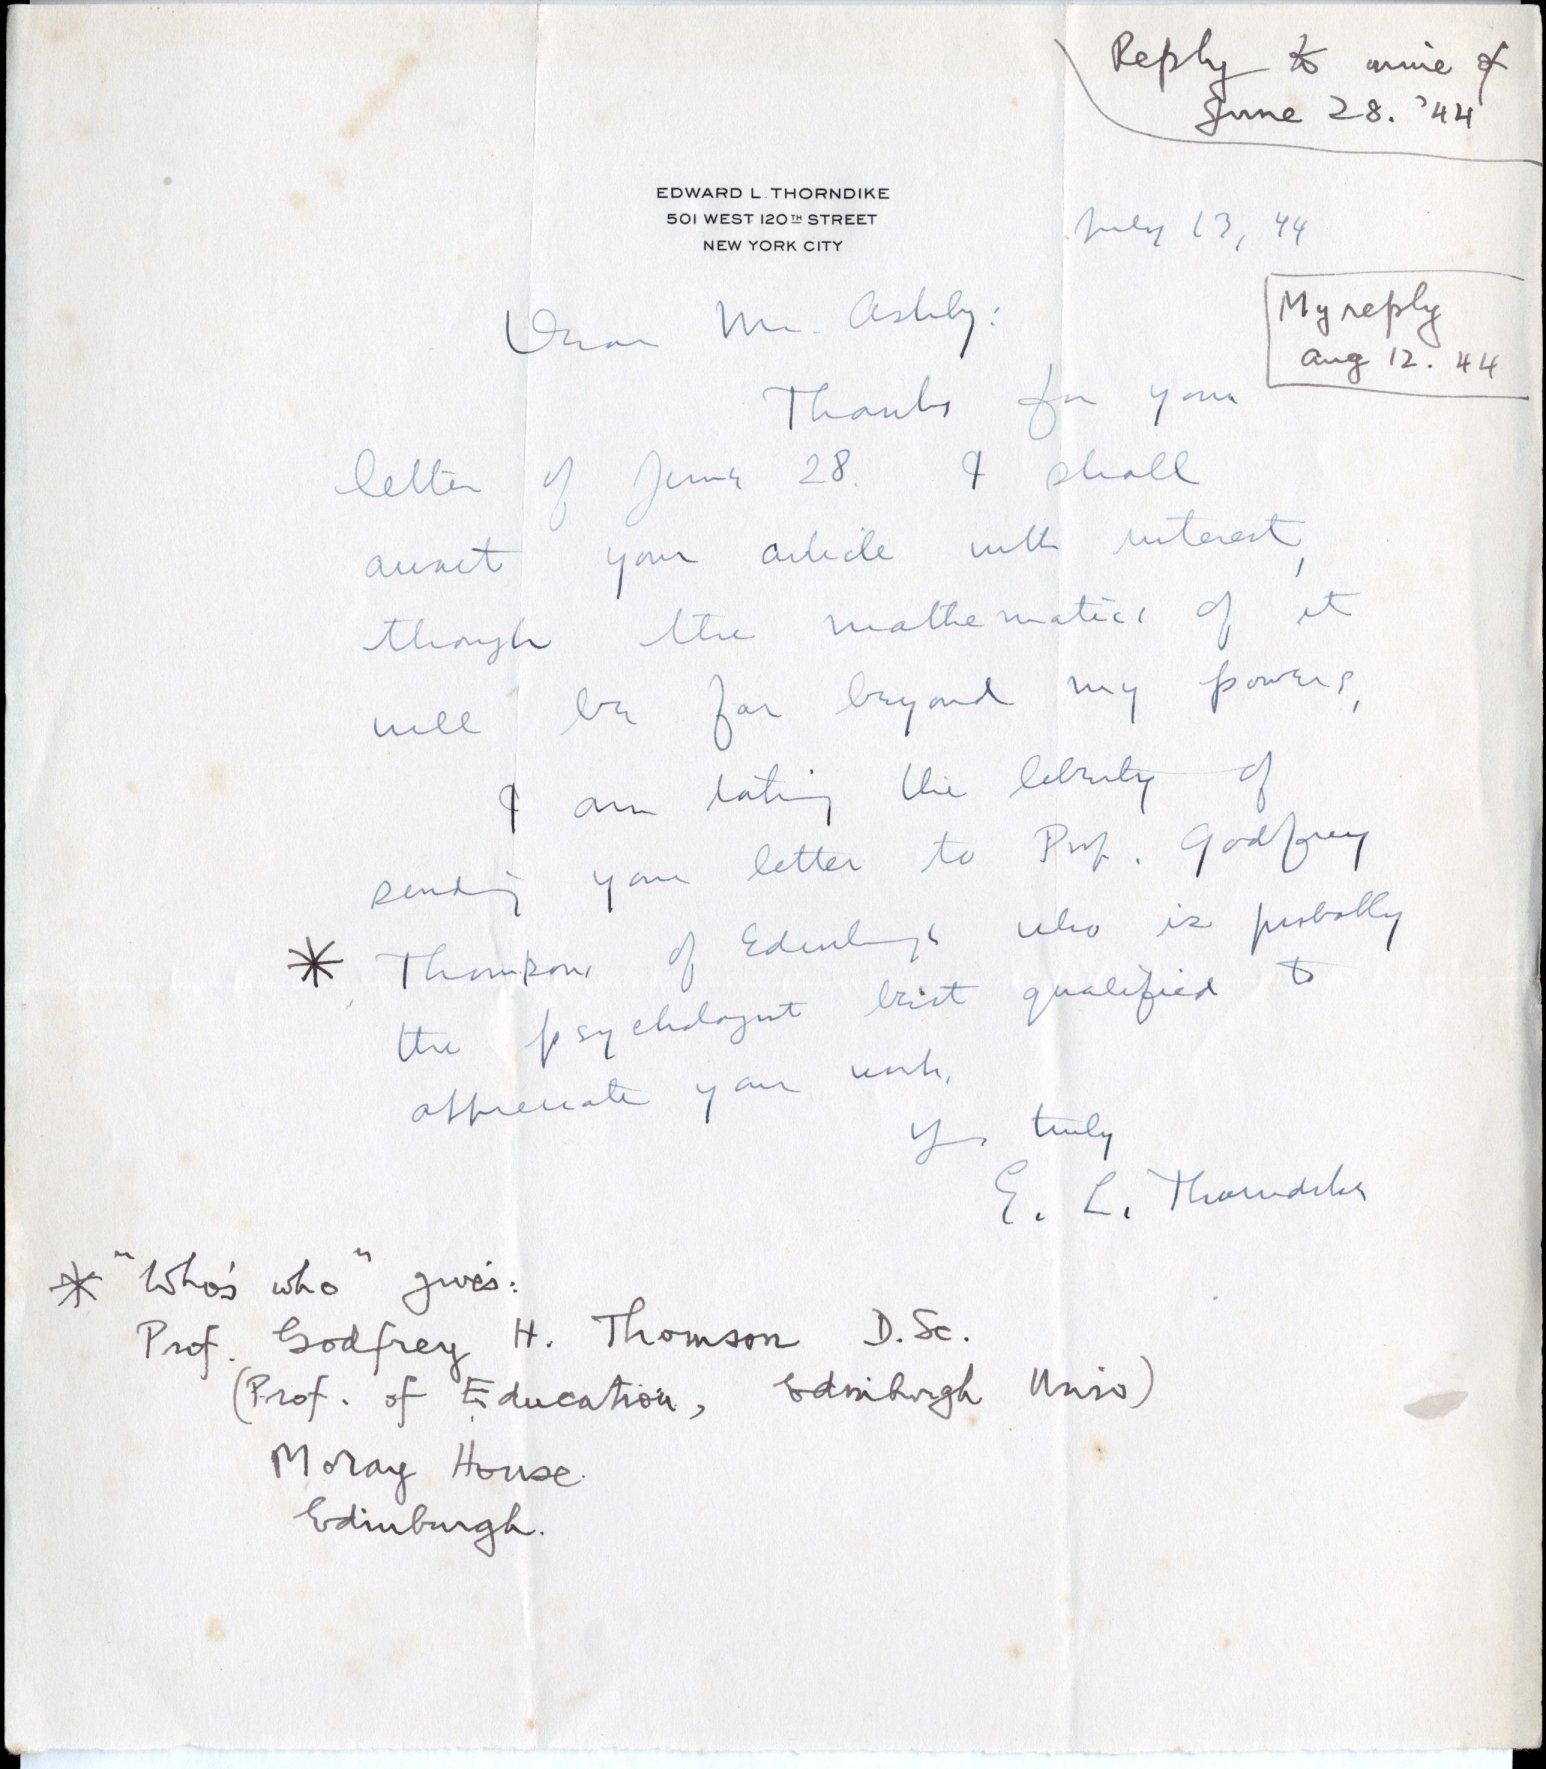 Reply to mine of
June 28. '44
EDWARD L. THORNDIKE
501 WEST 120TH STREET
NEW YORK CITY
July 13, 44
My reply
Aug 12. 44
Dear Mr. Ashby:
Thanks for your
letter of June 28. I shall
await your article with interest,
though the mathematics of it
will be far beyond my powers,
I am taking the liberty of
sending your letter to Prof. Godfrey
* Thomson, of Edinburgh who is probably
the psychologist best qualified to
appreciate your work.
Yrs truly
E. L. Thorndike
* "Who's who" gives:
Prof. Godfrey H. Thomson D.Sc.
(Prof. of Education, Edinburgh Univ)
Moray House.
Edinburgh.